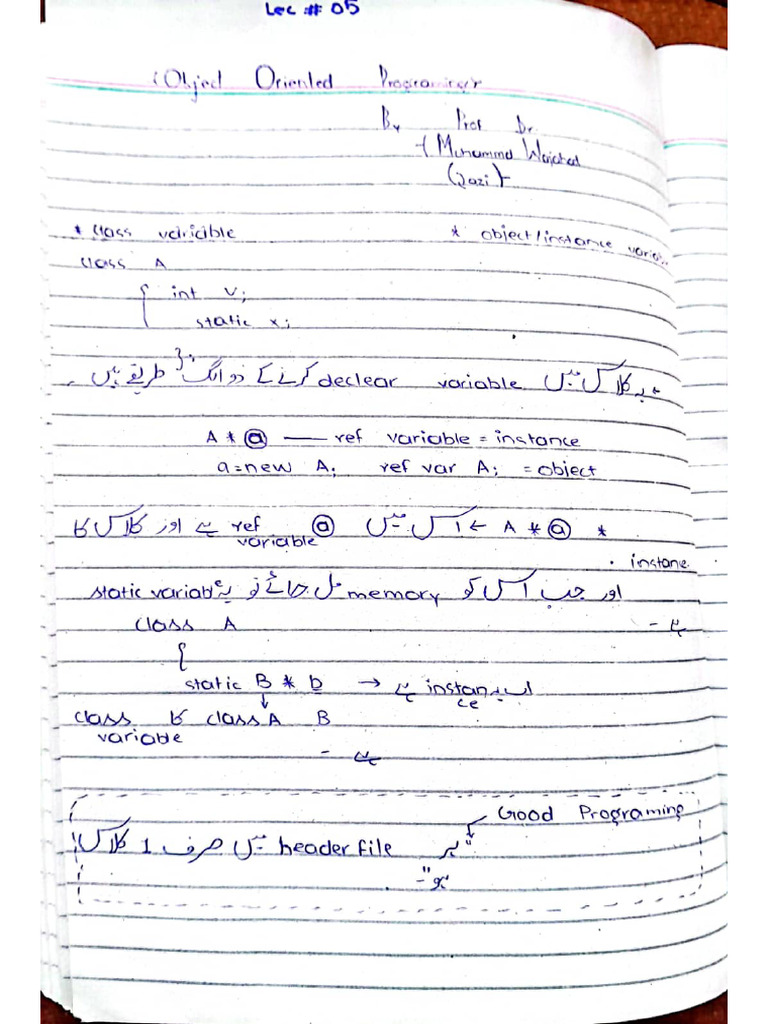 Lec # 05
Object Oriented Programing
By Prof Dr.
Muhammd Wajahat
(Qazi)
* class variable * object/instance variable
class A
{ int v;
static x;
};
← یہ کلاس میں variable declear کرنے کے دو الگ طریقے ہیں ۔
A * a —— ref variable = instance
a=new A; ref var A; = object
* A * a ← اس میں a ref variable ہے اور کلاس کا
instane .
اور جب اس کو memory مل جائے تو یہ static variable
ہے -
class A
{
static B * b → اب یہ instance ہے
↓
B class A کا class variable
ہے -
Good Programing
"ہر header file میں صرف 1 کلاس
ہو"-